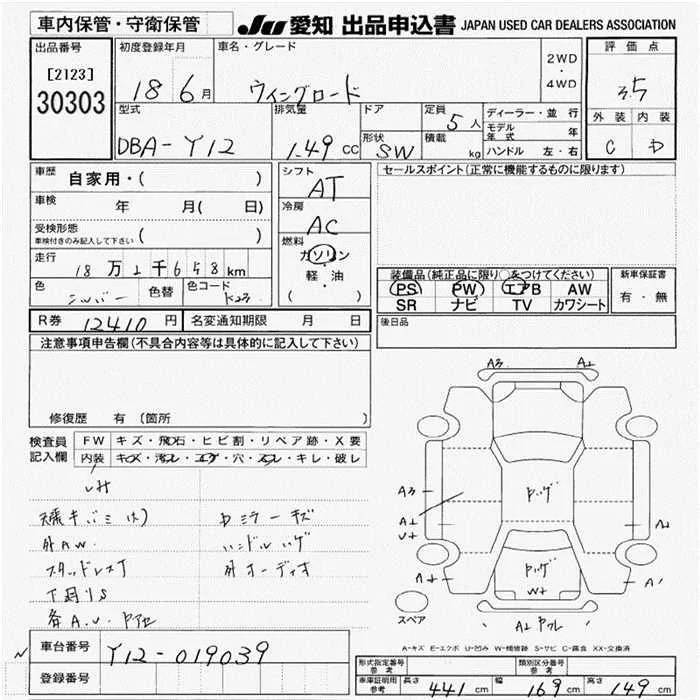 車内保管・守衛保管
JU 愛知 出品申込書 JAPAN USED CAR DEALERS ASSOCIATION
出品番号
[2123]
30303
初度登録年月
18 6月
車名・グレード
ウイングロード
2WD
・
4WD
評価点
3.5
外装 内装
C D
型式
DBA-Y12
排気量
1.49 CC
ドア
形状
SW
定員
5人
積載
kg
ディーラー・並行
モデル年式 年
ハンドル 左・右
車歴
自家用・( )
車検
年 月( 日)
受検形態
車検付きのみ記入して下さい ( )
走行
18万2千658km
色
シルバー
色替
色コード
K23
シフト
AT
冷房
AC
燃料
ガソリン
・
軽・油
( )
セールスポイント(正常に機能するものに限ります)
装備品(純正品に限り○をつけてください)
PS PW エアB AW
SR ナビ TV カワシート
新車保証書
有・無
後日品
R券 12410円
名変通知期限 月 日
注意事項申告欄(不具合内容等は具体的に記入して下さい)
修復歴 有(箇所 )
検査員
記入欄
FW キズ・飛石・ヒビ割・リペア跡・X要
内装 キズ・汚レ・コゲ・穴・スレ・キレ・破レ
外AW
スタッドレス
下廻りS
各A.U.
ハンドルハゲ
外オーディオ
A3
A2
A3
A2
A2
A1
W2
スペア
A-キズ E-エクボ U-凹み W-補修跡 S-サビ C-腐食 XX-交換済
車台番号
Y12-019039
登録番号
形式指定番号
参考
類別区分番号
参考
車庫証明用
参考
長さ 441cm 幅 169cm 高さ 149cm